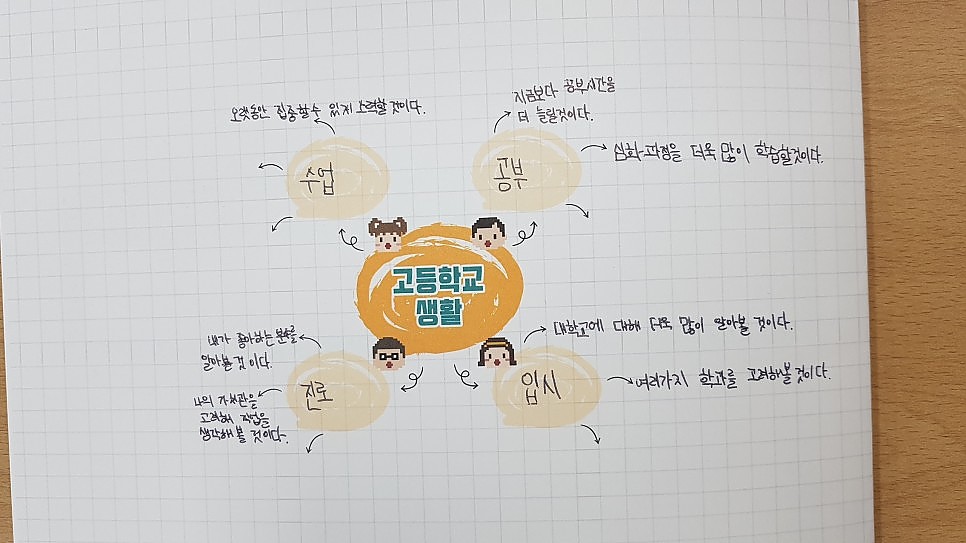 오랫동안 집중할 수 있게 노력할 것이다.
수업
지금보다 공부시간을
더 늘릴것이다.
심화과정을 더욱 많이 학습할것이다.
공부
고등학교
생활
내가 좋아하는 분야를
알아볼 것이다.
나의 가치관을
고려해 직업을
생각해 볼 것이다.
진로
대학교에 대해 더욱 많이 알아볼 것이다.
여러가지 학과를 고려해볼 것이다.
입시